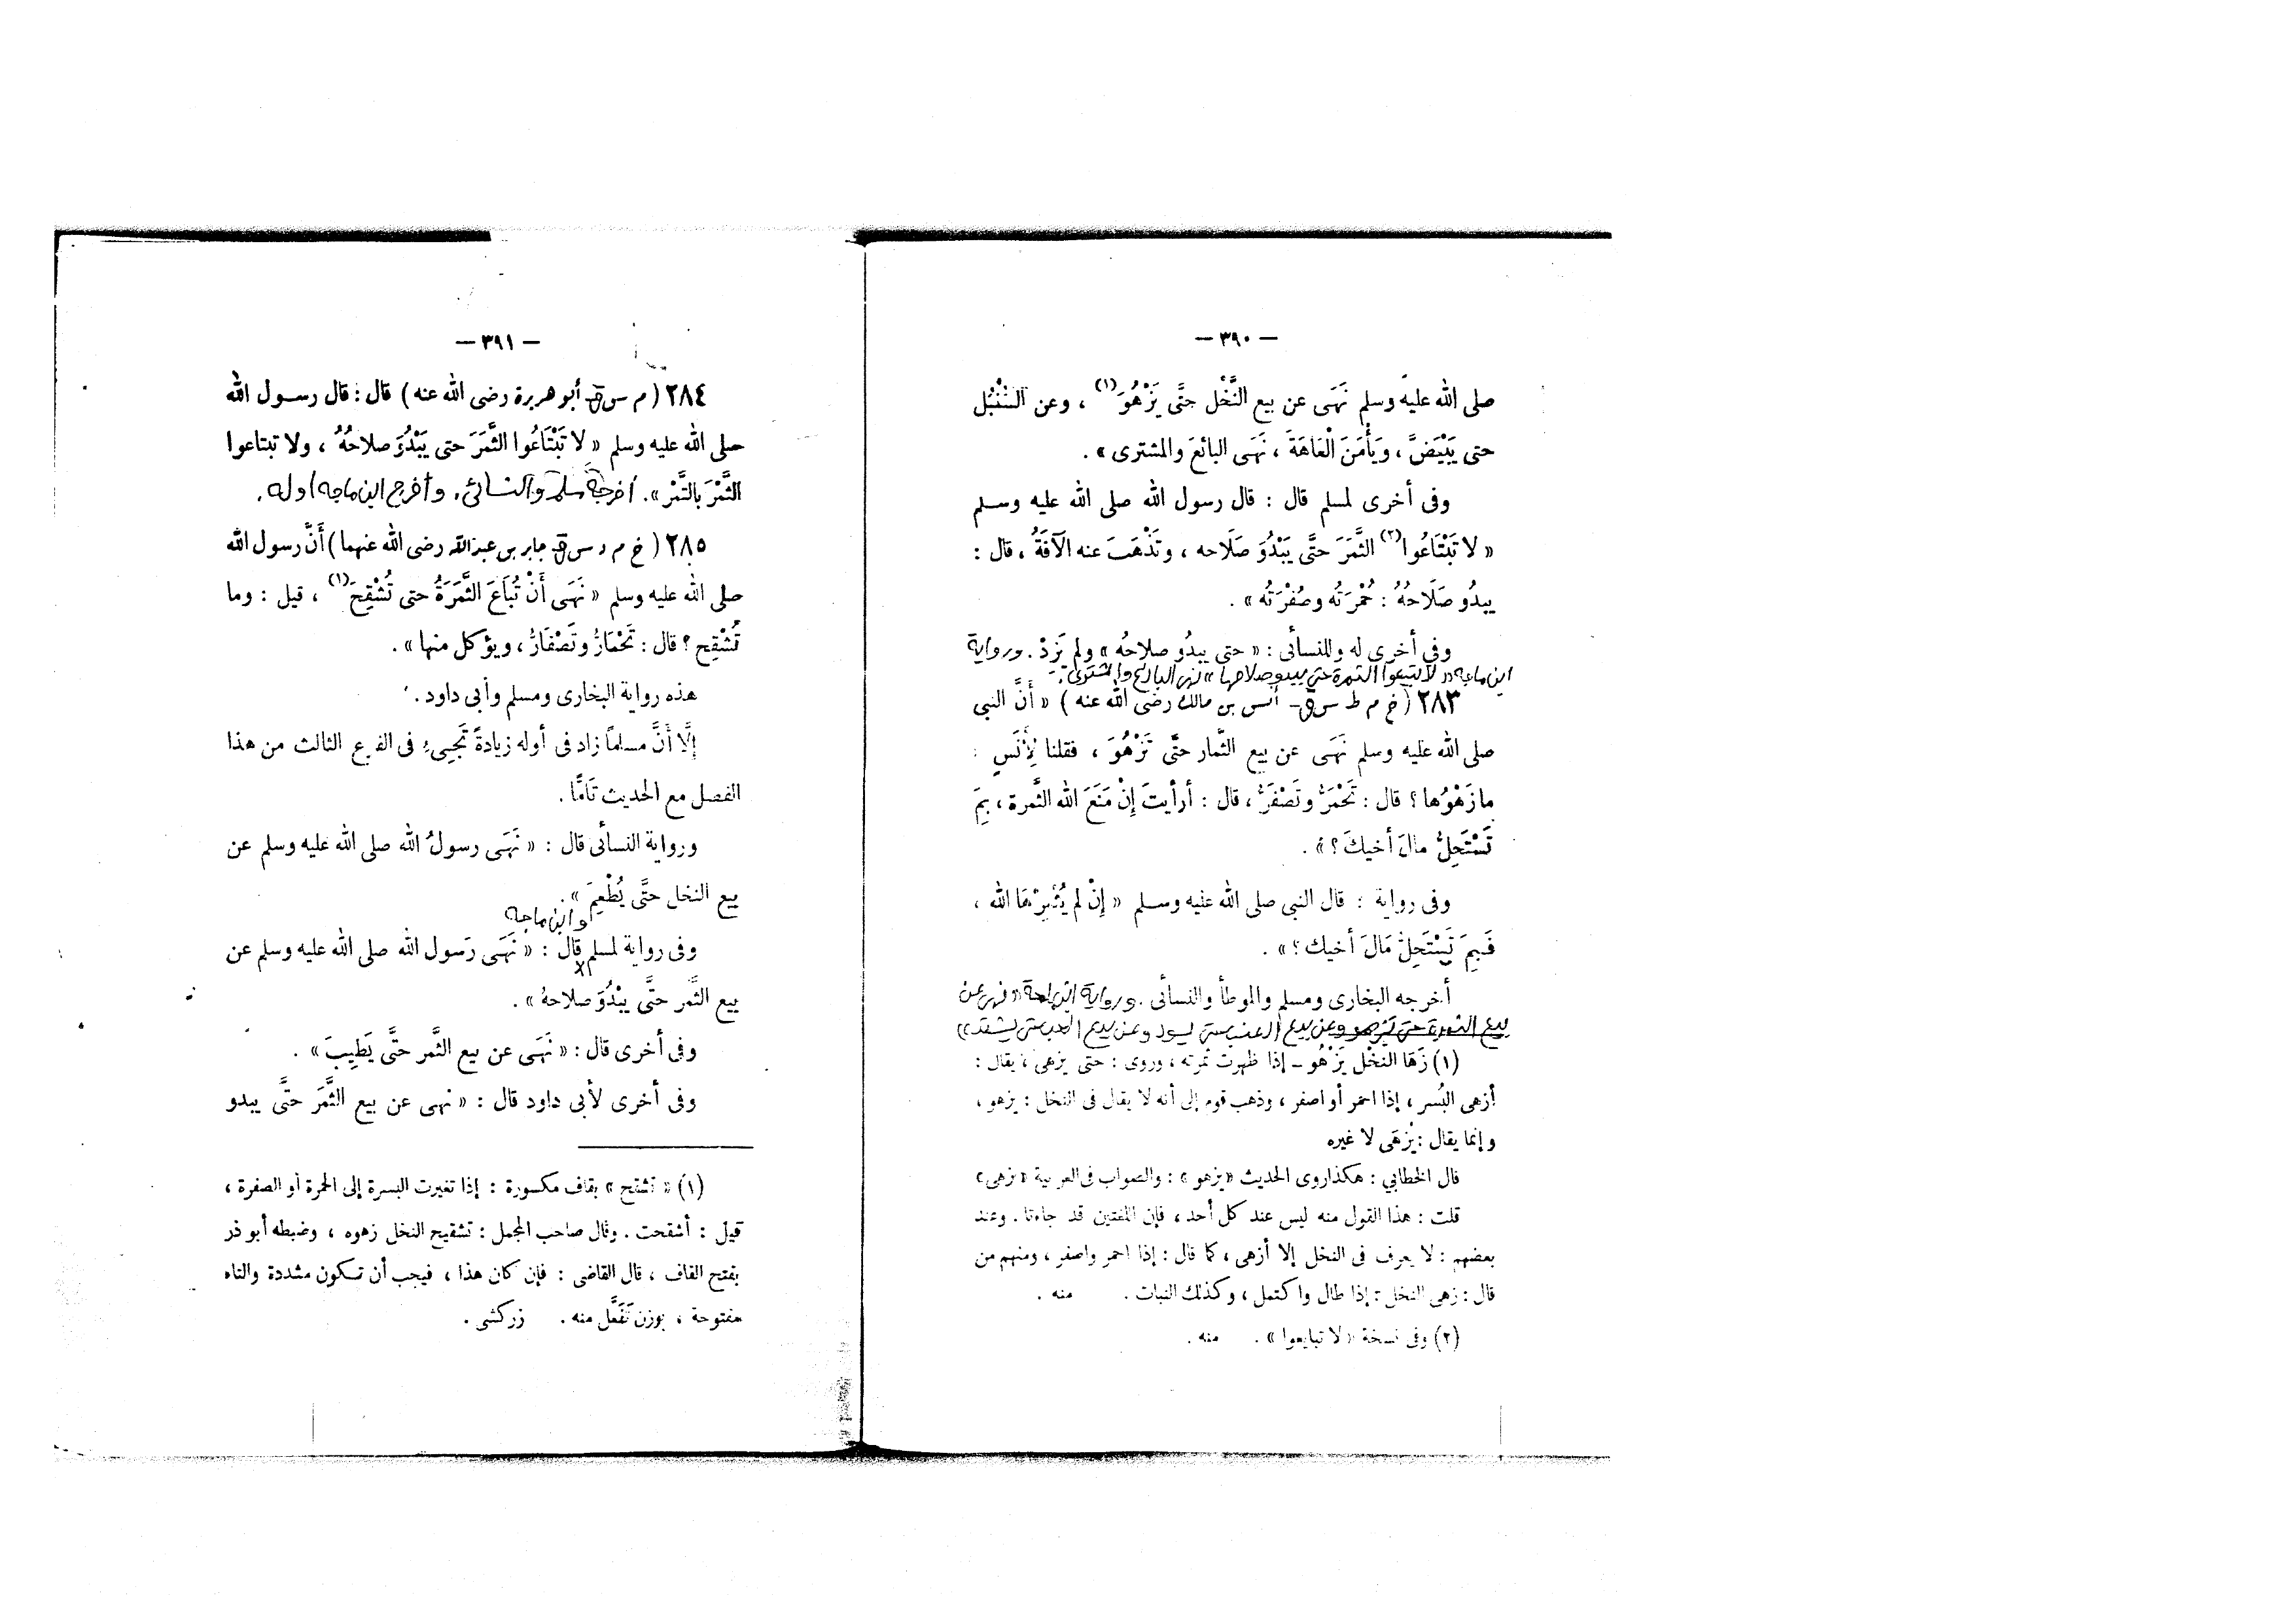 — ٣٩٠ —
صلى الله عليه وسلم نَهَى عن بيع النَّخْل حتَّى يَزْهُوَ(١) ، وعن السُّنْبُل
حتى يَبْيَضَّ ، وَيَأْمَنَ الْعَاهَةَ ، نَهَى البائعَ والمشترى » .
وفى أخرى لمسلم قال : قال رسول الله صلى الله عليه وسلم
« لا تَبْتَاعُوا(٢) الثَّمَرَ حتَّى يَبْدُوَ صَلَاحه ، وتَذْهَبَ عنه الآفَةُ ، قال :
يبدُو صَلَاحُهُ : حُمْرَتُه وصُفْرَتُه » .
وفى أخرى له وللنسائى : « حتى يبدُو صلاحُه » ولم يَزِدْ . ورواية
ابن ماجه « لا تبيعوا الثمرة حتى يبدو صلاحها » نهى البائع والمشترى .
٢٨٣ ( خ م ط س ق – أنس بن مالك رضى الله عنه ) « أَنَّ النبى
صلى الله عليه وسلم نَهَى عن بيع الثِّمار حتَّى تَزْهُوَ ، فقلنا لِأَنَسٍ :
ما زَهْوُها ؟ قال : تَحْمَرُّ وتَصْفَرُّ ، قال : أرأيتَ إِنْ مَنَعَ الله الثَّمرة ، بِمَ
تَسْتَحِلُّ مالَ أخيكَ ؟ » .
وفى رواية : قال النبى صلى الله عليه وسلم « إِنْ لم يُثْمِرْهَا الله ،
فَبِمَ تَسْتَحِلُّ مَالَ أخيك ؟ » .
أخرجه البخارى ومسلم والموطأ والنسائى . ورواية ابن ماجة « نهى عن
بيع الثمرة حتى تزهو وعن بيع العنب حتى يسود وعن بيع الحب حتى يشتد »
(١) زَهَا النخْل يَزْهُو – إذا ظهرت ثمرته ، وروى : حتى يزهى ، يقال :
أزهى البُسر ، إذا احمر أو اصفر ، وذهب قوم إلى أنه لا يقال فى النخل : يزهو ،
وإنما يقال : يُزهَى لا غيره
قال الخطابي : هكذا روى الحديث « يزهو » : والصواب فى العربية « يزهى »
قلت : هذا القول منه ليس عند كل أحد ، فإن اللغتين قد جاءتا . وعند
بعضهم : لا يعرف فى النخل إلا أزهى ، كما قال : إذا احمر واصفر ، ومنهم من
قال : زهى النخل : إذا طال واكتمل ، وكذلك النبات . منه .
(٢) وفى نسخة « لا تبايعوا » . منه .
— ٣٩١ —
٢٨٤ ( م س ق – أبو هريرة رضى الله عنه ) قال : قال رسول الله
صلى الله عليه وسلم « لا تَبْتَاعُوا الثَّمَرَ حتى يَبْدُوَ صلاحُهُ ، ولا تبتاعوا
الثَّمَرَ بالتَّمْرِ » . أخرجه مسلم والنسائى . وأخرج ابن ماجه أوله .
٢٨٥ ( خ م د س ق – جابر بن عبد الله رضى الله عنهما ) أَنَّ رسول الله
صلى الله عليه وسلم « نَهَى أَنْ تُبَاعَ الثَّمَرَةُ حتى تُشْقِحَ(١) ، قيل : وما
تُشْقِح ؟ قال : تَحْمَارُّ وتَصْفَارُّ ، ويؤكل منها » .
هذه رواية البخارى ومسلم وأبى داود .
إلَّا أَنَّ مسلماً زاد فى أوله زيادةً تَجِيىءُ فى الفرع الثالث من هذا
الفصل مع الحديث تَامًّا .
ورواية النسائى قال : « نَهَى رسولُ الله صلى الله عليه وسلم عن
بيع النخل حتَّى يُطْعِمَ » .
وابن ماجه
وفى رواية لمسلم قال : « نَهَى رَسول الله صلى الله عليه وسلم عن
بيع الثَّمر حتَّى يَبْدُوَ صلاحهُ » .
وفى أخرى قال : « نَهَى عن بيع الثَّمر حتَّى يَطِيبَ » .
وفى أخرى لأبى داود قال : « نهى عن بيع الثَّمَرَ حتَّى يبدو
(١) « تشقح » بقاف مكسورة : إذا تغيرت البسرة إلى الحمرة أو الصفرة ،
قيل : أشقحت . وقال صاحب المجمل : تشقيح النخل زهوه ، وضبطه أبو ذر
بفتح القاف ، قال القاضى : فإن كان هذا ، فيجب أن تكون مشددة والتاء
مفتوحة ، بوزن تَفَعَّل منه . زركشى .